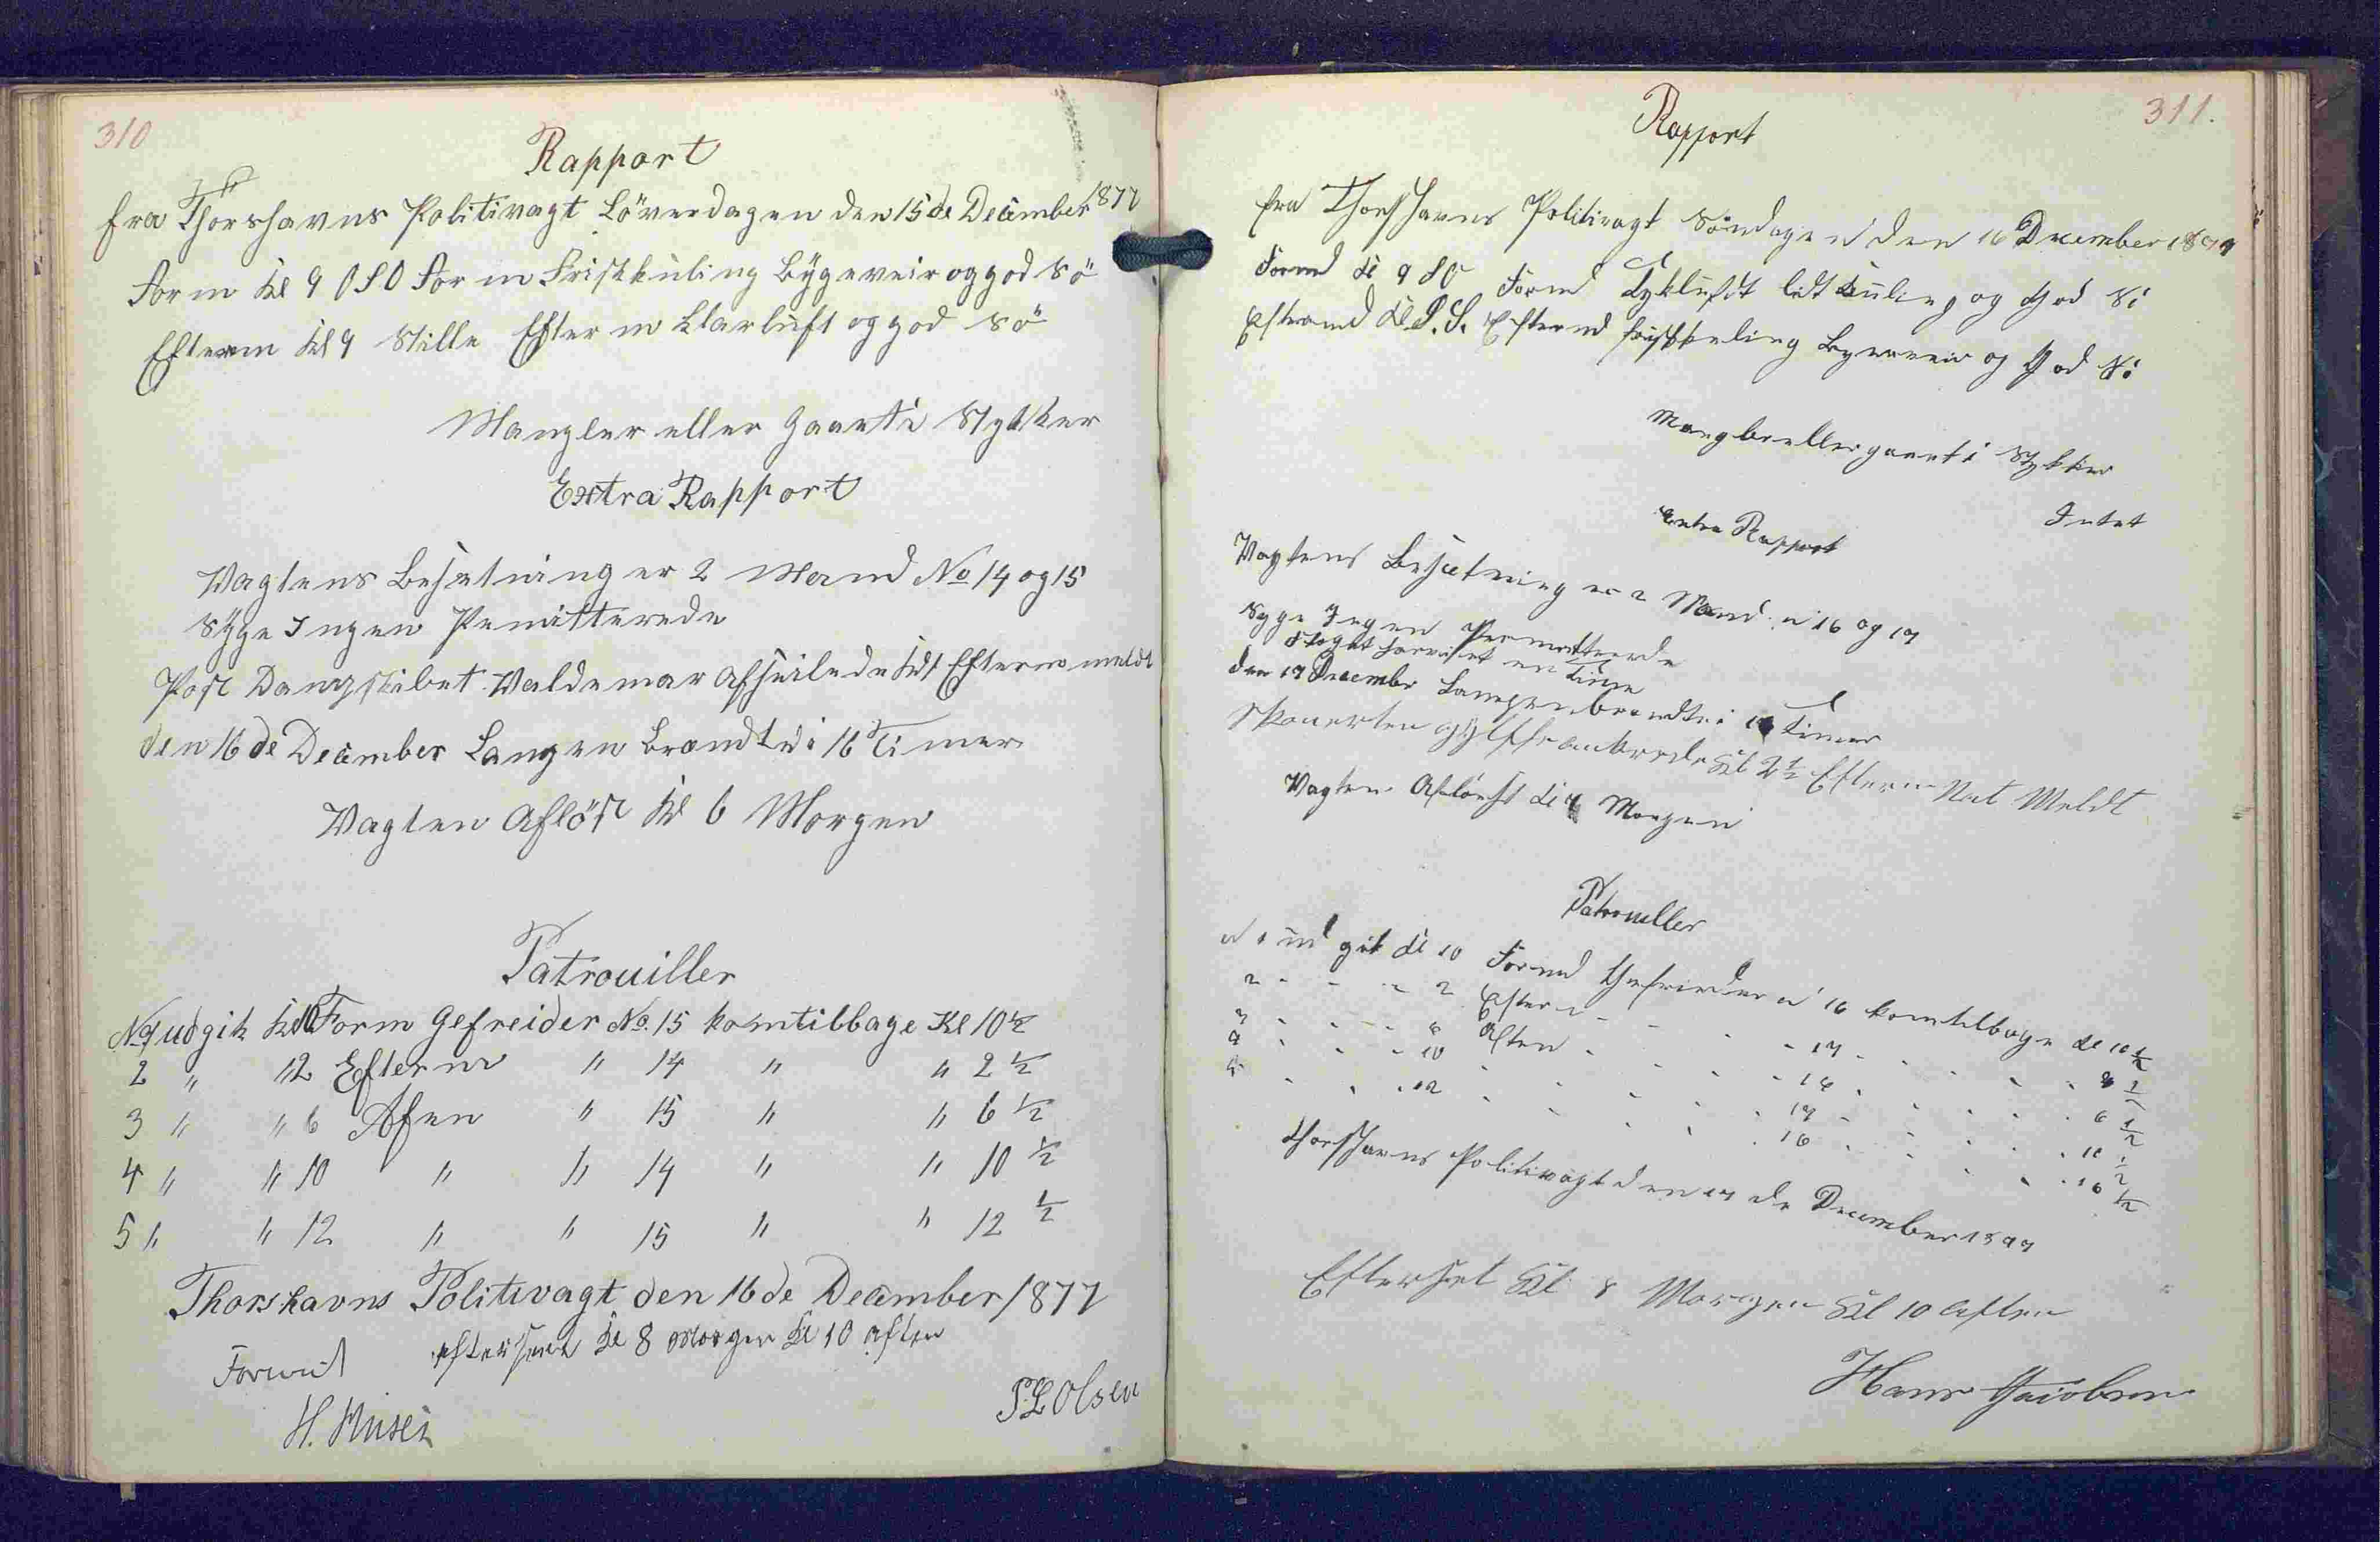 310
Rapport
fra Thorshavns Politivagt Löverdagen den 15de December 1877
Form Kl 9 OSO Form Friskkuling Bygeveir og god Sö
Efterm Kl 4 Stille Efterm Klarluft og god Sö
Mangler eller gaaet i Stykker
Extra Rapport
Vagtens Besætning er 2 Mand No 14 og 15
Syge Ingen Permitterede
Post Dampskibet Valdemar afseilede Kl Efterm meldt
den 16de December Lampen Brændte i 16 Timer
Vagten Aflöst Kl 6 Morgen
Patrouiller
No 1 udgik Kl 10 Form Gefreider No. 15 kom tilbage Kl 10 1/2
2 " 12 Efterm " 14 " " 2 1/2
3 " " 6 Afen " 15 " " 6 1/2
4 " " 10 " " 14 " " 10 1/2
5 " " 12 " " 15 " " 12 1/2
Thorshavns Politivagt den 16de December 1877
efterseet Kl 8 Morgen Kl 10 Aften
H.
P. L Olsen
311.
Rapport
fra Thorshavns Politivagt Söndagen den 16 December 1877
Formd Kl 9 SO Formd Tykluft lidt Kuling og God Sö
Eftermd Kl. Eftermd friskkuling Bygeveir og God Sö
Mangler eller gaaet i Stykker
Intet
Extra Rapport
Vagtens Besætning er 2 Mand n 16 og 17
Syge Ingen Permitterede
en Time
den 17 December Lampen brændte i Timer
Skonerten ankrede Kl 2 1/2 Efterm Nat Meldt
Vagten Aflöest Kl Morgen
Patrouller
n 1 ud gik Kl 10 Formd Gefreider n 16 kom tilbage Kl 10 1/2
2 - - - 2 Efter - - - 17 - - - 2 1/2
3 - - - 6 Aften - - - 16 - - - 6 1/2
4 - - - 10 - - - 17 - - - 10 1/2
5 - - - 12 - - - 16 - - - 1/2
Thorshavns Politivagt den 17 de December 1877
Efterset Kl 8 Morgen Kl 10 Aften
Hans Jacobsen